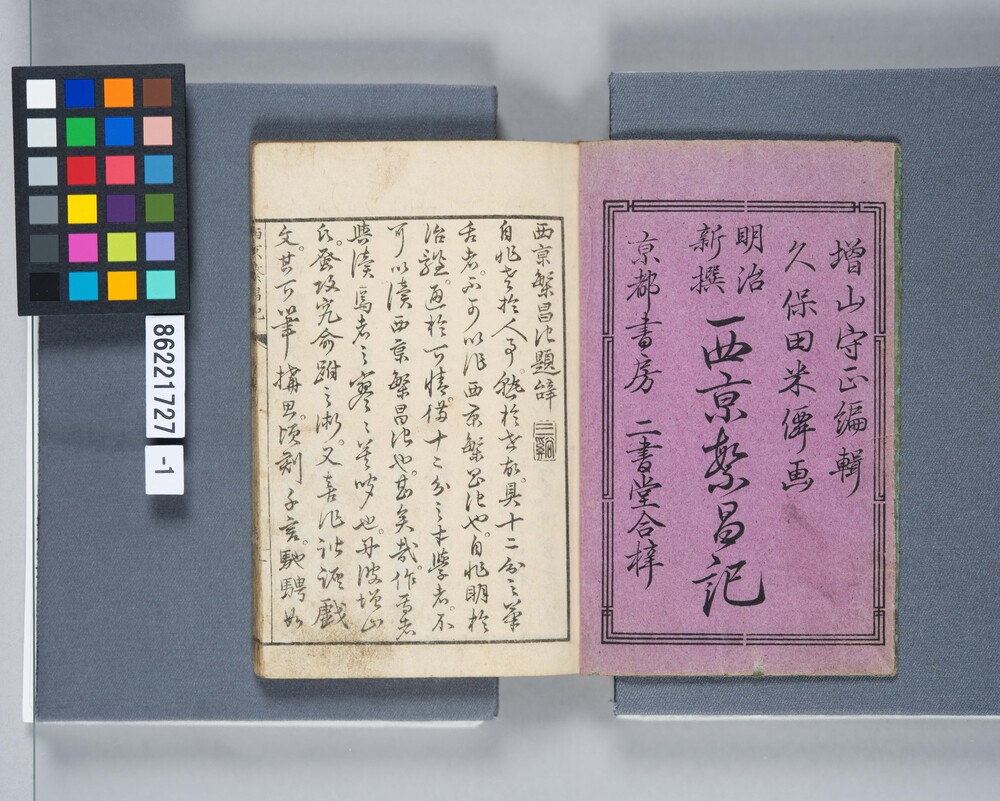 増山守正編輯
久保田米僊画
明治
新撰
西京繁昌記
京都書房 二書堂合梓
西京繁昌記題辞
自非老於人事。熟於世故。具十二分之筆
舌者。不可以作西京繁昌記也。自非明於
治體。通於下情。備十二分之才學者。不
可以讀西京繁昌記也。甚矣哉。作焉者
與讀焉者之寥々
也。丹波増山
氏。蚤攻究俞跗之術。又喜作詼謔戯
文。其下筆構思。頃刻千言。馳騁如
西京繁昌記
86221727
-1